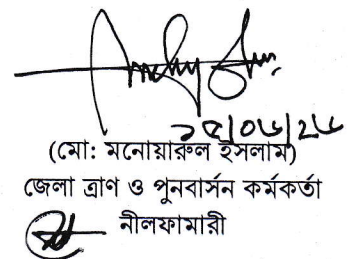 ১৫/০৬/২৬
(মো: মনোয়ারুল ইসলাম)
জেলা ত্রাণ ও পুনবার্সন কর্মকর্তা
নীলফামারী